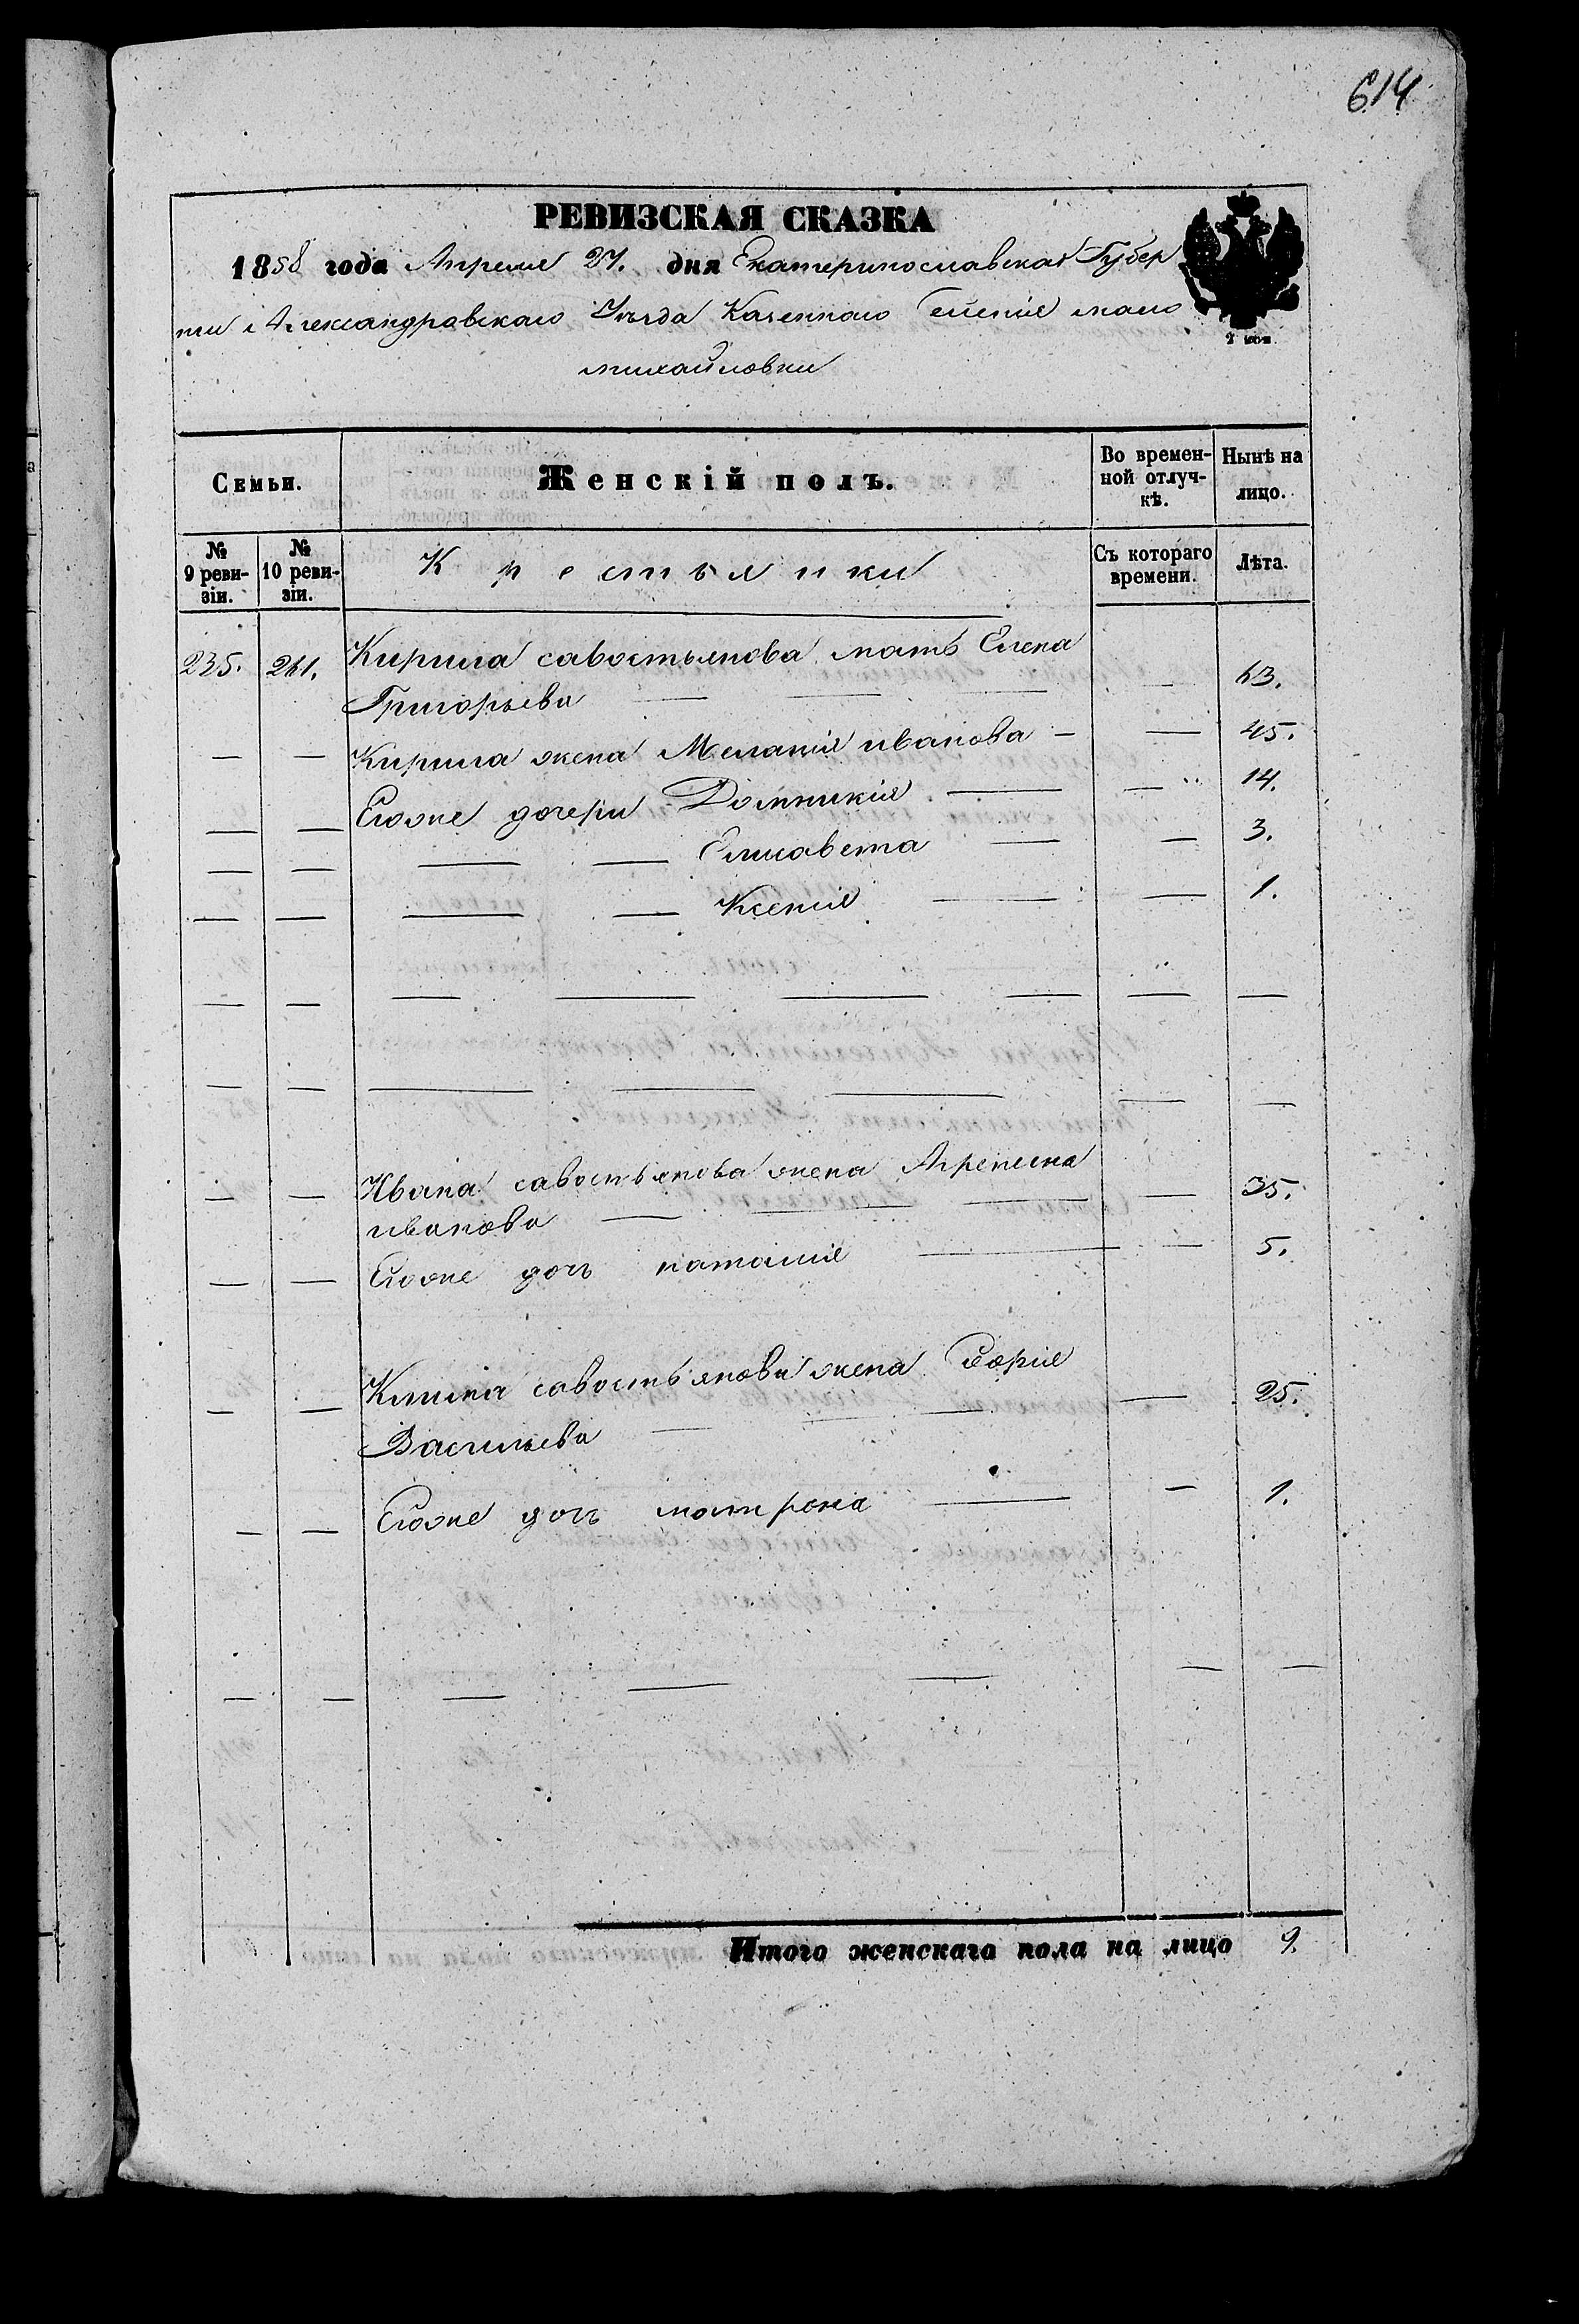 614
РЕВИЗСКАЯ СКАЗКА
1858 года Апреля 27. дня Екатеринославская Губер
нии Александравскаго Уѣзда Казеннаго Селенія мало
михайловки
2 коп.
Семьи. Женскій полъ. Во времен-ной отлуч-кѣ. Нынѣ на лицо.
№ 9 реви-зіи. № 10 реви-зіи. Крестьянки Съ котораго времени. Лѣта.
235. 261. Кирила савостьянова мать Елена
Григорьева — — — — 63.
— — Кирила жена Меланія иванова — — 45.
— — Егоже дочери Домникія — — 14.
— — — — Елисавета — — 3.
— — — — Ксенія — — 1.
— — — — — — — —
— — — — — — —
— — Ивана савостьянова жена Агрепина — 35.
иванова — — —
— — Егоже дочь наталія — — 5.
— — Клима савостьянова жена дарія — 25.
Васильева — — —
— — Егоже дочь матрона — — 1.
— — — — — — —
Итого женскаго пола на лицо 9.